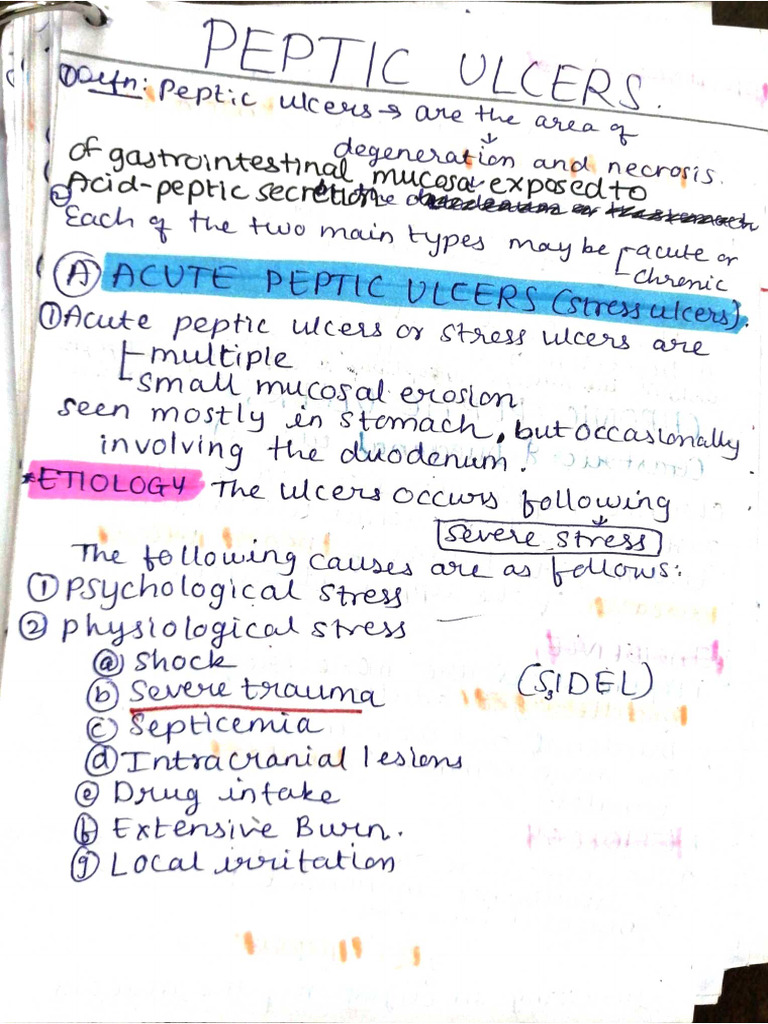 PEPTIC ULCERS.
① Defn: Peptic ulcers → are the area of
degeneration and necrosis.
of gastrointestinal mucosa exposed to
② Acid-peptic secretion
Each of the two main types may be acute or
chrenic
Ⓐ ACUTE PEPTIC ULCERS (stress ulcers).
① Acute peptic ulcers or stress ulcers are
multiple
small mucosal erosion
seen mostly in stomach, but occasionally
involving the duodenum.
*ETIOLOGY The ulcers occurs following
severe stress
The following causes are as follows:
① Psychological stress
② Physiological stress
ⓐ Shock
ⓑ Severe trauma
(S3IDEL)
ⓒ Septicemia
ⓓ Intracranial lesions
ⓔ Drug intake
ⓕ Extensive Burn.
ⓖ Local irritation